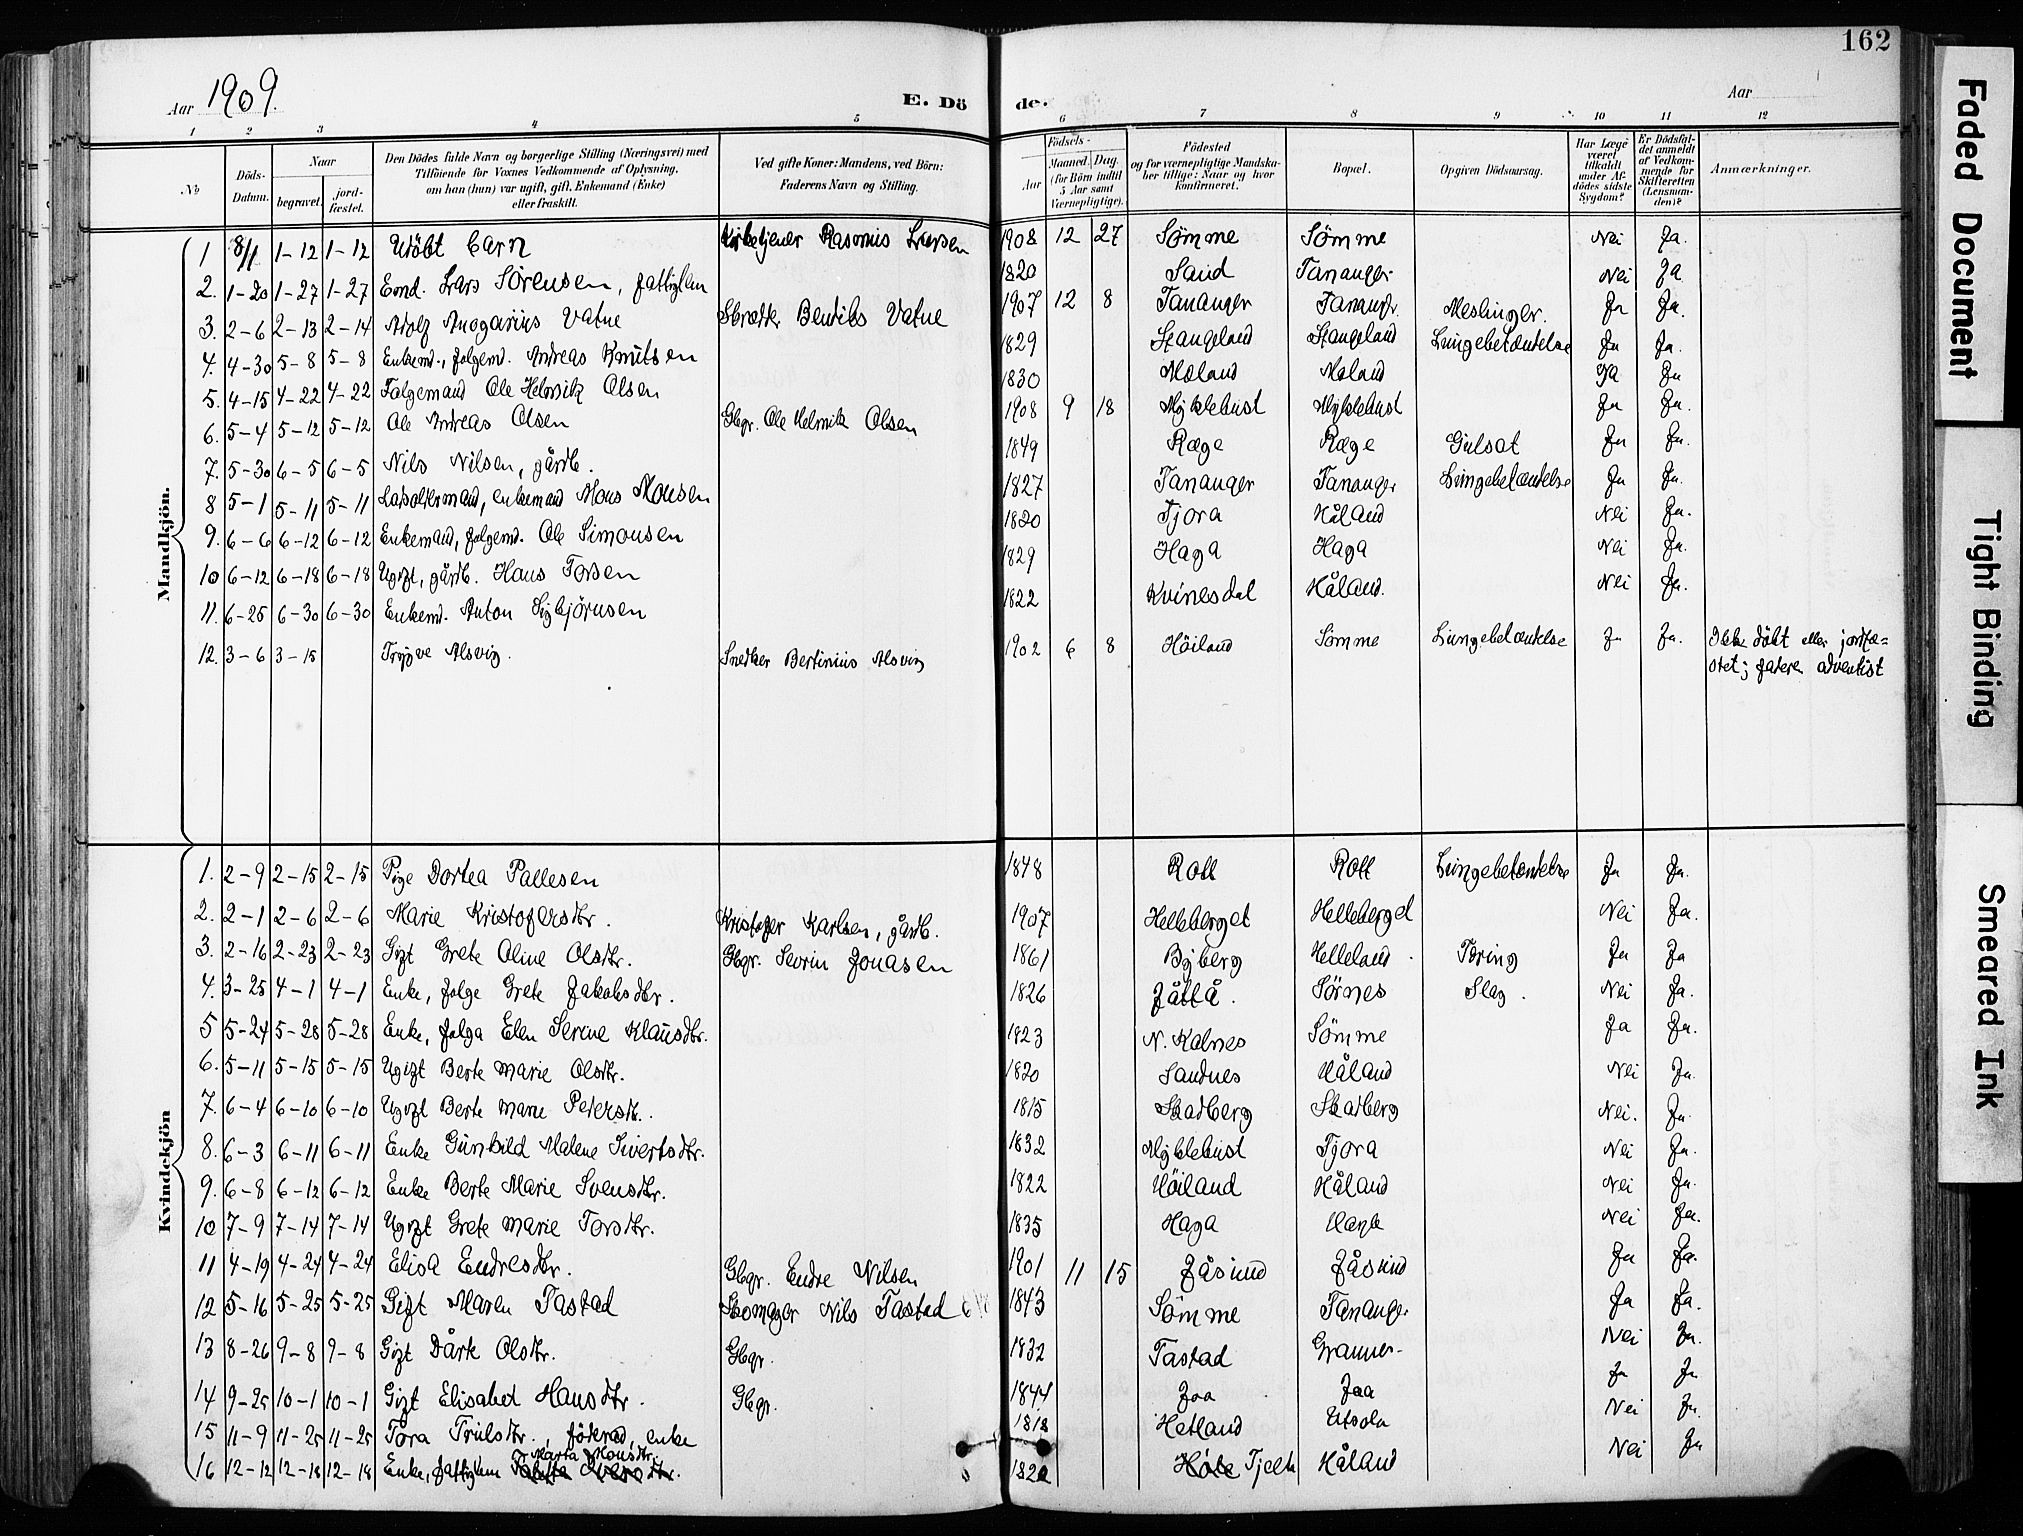 162
Aar 1909.
E. Dö de.
Aar
1 2 3 4 5 6 7 8 9 10 11 12
No
Döds-Datum.
Naar
begravet.
jord-fæstet.
Den Dödes fulde Navn og borgerlige Stilling (Næringsvei) med
Tilföiende for Voxnes Vedkommende af Oplysning,
om han (hun) var ugift, gift, Enkemand (Enke)
eller fraskilt.
Ved gifte Koner: Mandens, ved Börn:
Faderens Navn og Stilling.
Födsels-
Aar
Maaned. Dag.
(for Börn indtil
5 Aar samt
Værnepligtige).
Födested
og for værnepligtige Mandska-
ber tillige: Naar og hvor
konfirmeret.
Bopæl.
Opgiven Dödsaarsag.
Har Læge
været
tilkaldt
under Af-
dödes sidste
Sygdom?
Er Dödsfal-
det anmeldt
af Vedkom-
mende for
Skifteretten
(Lensman-
den)?
Anmærkninger.
Mandkjön.
1 8/1 1-12 1-12 Udöbt barn Kirketjener Rasmus Larsen 1908 12 27 Sömme Sömme Nei Ja.
2. 1-20 1-27 1-27 End. Lars Sörensen, fattiglem 1820 Sand Tananger Nei Ja
3. 2-6 2-13 2-14 Adolf Ansgarius Vatne Skrædder Bendiks Vatne 1907 12 8 Tananger Tananger. Meslinger. Ja Ja.
4. 4-30 5-8 5-8 Enkem., folgem. Andreas Knutsen 1829 Stangeland Stangeland Lungebetændelse Ja Ja.
5. 4-15 4-22 4-22 Folgemand Ole Helmik Olsen 1830 Mæland Mæland Ja Ja
6. 5-4 5-12 5-12 Ole Andreas Olsen Gbgr. Ole Helmik Olsen 1908 9 18 Myklebust Myklebust Ja Ja.
7. 5-30 6-5 6-5 Nils Nilsen, gårdb. 1849 Ræge Ræge Gulsot Ja Ja.
8 5-1 5-11 5-11 Losoldermand, enkemand Mons Monsen 1827 Tananger Tananger Lungebetændelse Ja Ja.
9. 6-6 6-12 6-12 Enkemand, folgem. Ole Simonsen 1820 Tjora Håland Nei Ja.
10 6-12 6-18 6-18 Ugift, gårdb. Hans Torsen 1829 Haga Haga Nei Ja.
11. 6-25 6-30 6-30 Enkem. Anton Sigbjörnsen 1822 Kvinesdal Håland. Nei Ja.
12. 3-6 3-15 Trygve Alsvig. Snedker Bertinius Alsvig 1902 6 8 Höiland Sömme Lungebetændelse Ja Ja. Ikke döbt eller jordfæ-
stet; faderen adventist
Kvindekjön
1. 2-9 2-15 2-15 Pige Dortea Pallesen 1848 Rott Rott Lungebetændelse Ja Ja.
2. 2-1 2-6 2-6 Marie Kristofersdtr. Kristofer Karlsen, gårdb. 1907 Helleberget Helleberget Nei Ja.
3. 2-16 2-23 2-23 Gift Grete Oline Olsdtr. Gbgr. Sevrin Jonasen 1861 Byberg Helleland Tæring Ja Ja
4. 3-25 4-1 4-1 Enke, folge Grete Jakobsdtr. 1826 Jåttå. Sörnes Slag. Nei Ja.
5 5-24 5-28 5-28 Enke, folga Elen Serine Klausdtr. 1823 N. Kalnes Sömme Ja Ja.
6. 5-11 5-15 5-15 Ugift Berte Marie Olsdtr. 1820 Sandnes Håland Nei Ja.
7. 6-4 6-10 6-10 Ugift Berte Marie Petersdtr. 1815 Skadberg Skadberg Nei. Ja.
8. 6-3 6-11 6-11 Enke Gunhild Malene Sivertsdtr. 1832 Myklebust Tjora Nei Ja.
9. 6-8 6-12 6-12 Enke Berte Marie Svensdtr. 1822 Höiland Håland Nei Ja.
10 7-9 7-14 7-14 Ugift Grete Marie Torsdtr. 1835 Haga Nei Ja.
11 4-19 4-24 4-24 Elisa Endresdtr. Gbgr. Endre Nilsen 1901 11 15 Jåsund Jåsund Ja Ja.
12 5-16 5-25 5-25 Gift Maren Tastad Skomager Nils Tastad 1843 Sömme Tananger Ja Ja.
13 8-26 9-8 9-8 Gift Dårte Olsdtr. Gbgr. 1832 Tastad Grannes Nei Ja.
14 9-25 10-1 10-1 Gift Elisabet Hansdtr. Gbgr. 1844 Joa Joa Ja Ja
15 11-9 11-25 11-25 Tora Trulsdtr., föderåd, enke 1818 Hetland Utsola Nei Ja.
16 12-12 12-18 12-18 Enke, fattiglem Marta Monsdtr. 1820 Tjelta Håland Nei Ja
Faded Document
Tight Binding
Smeared Ink